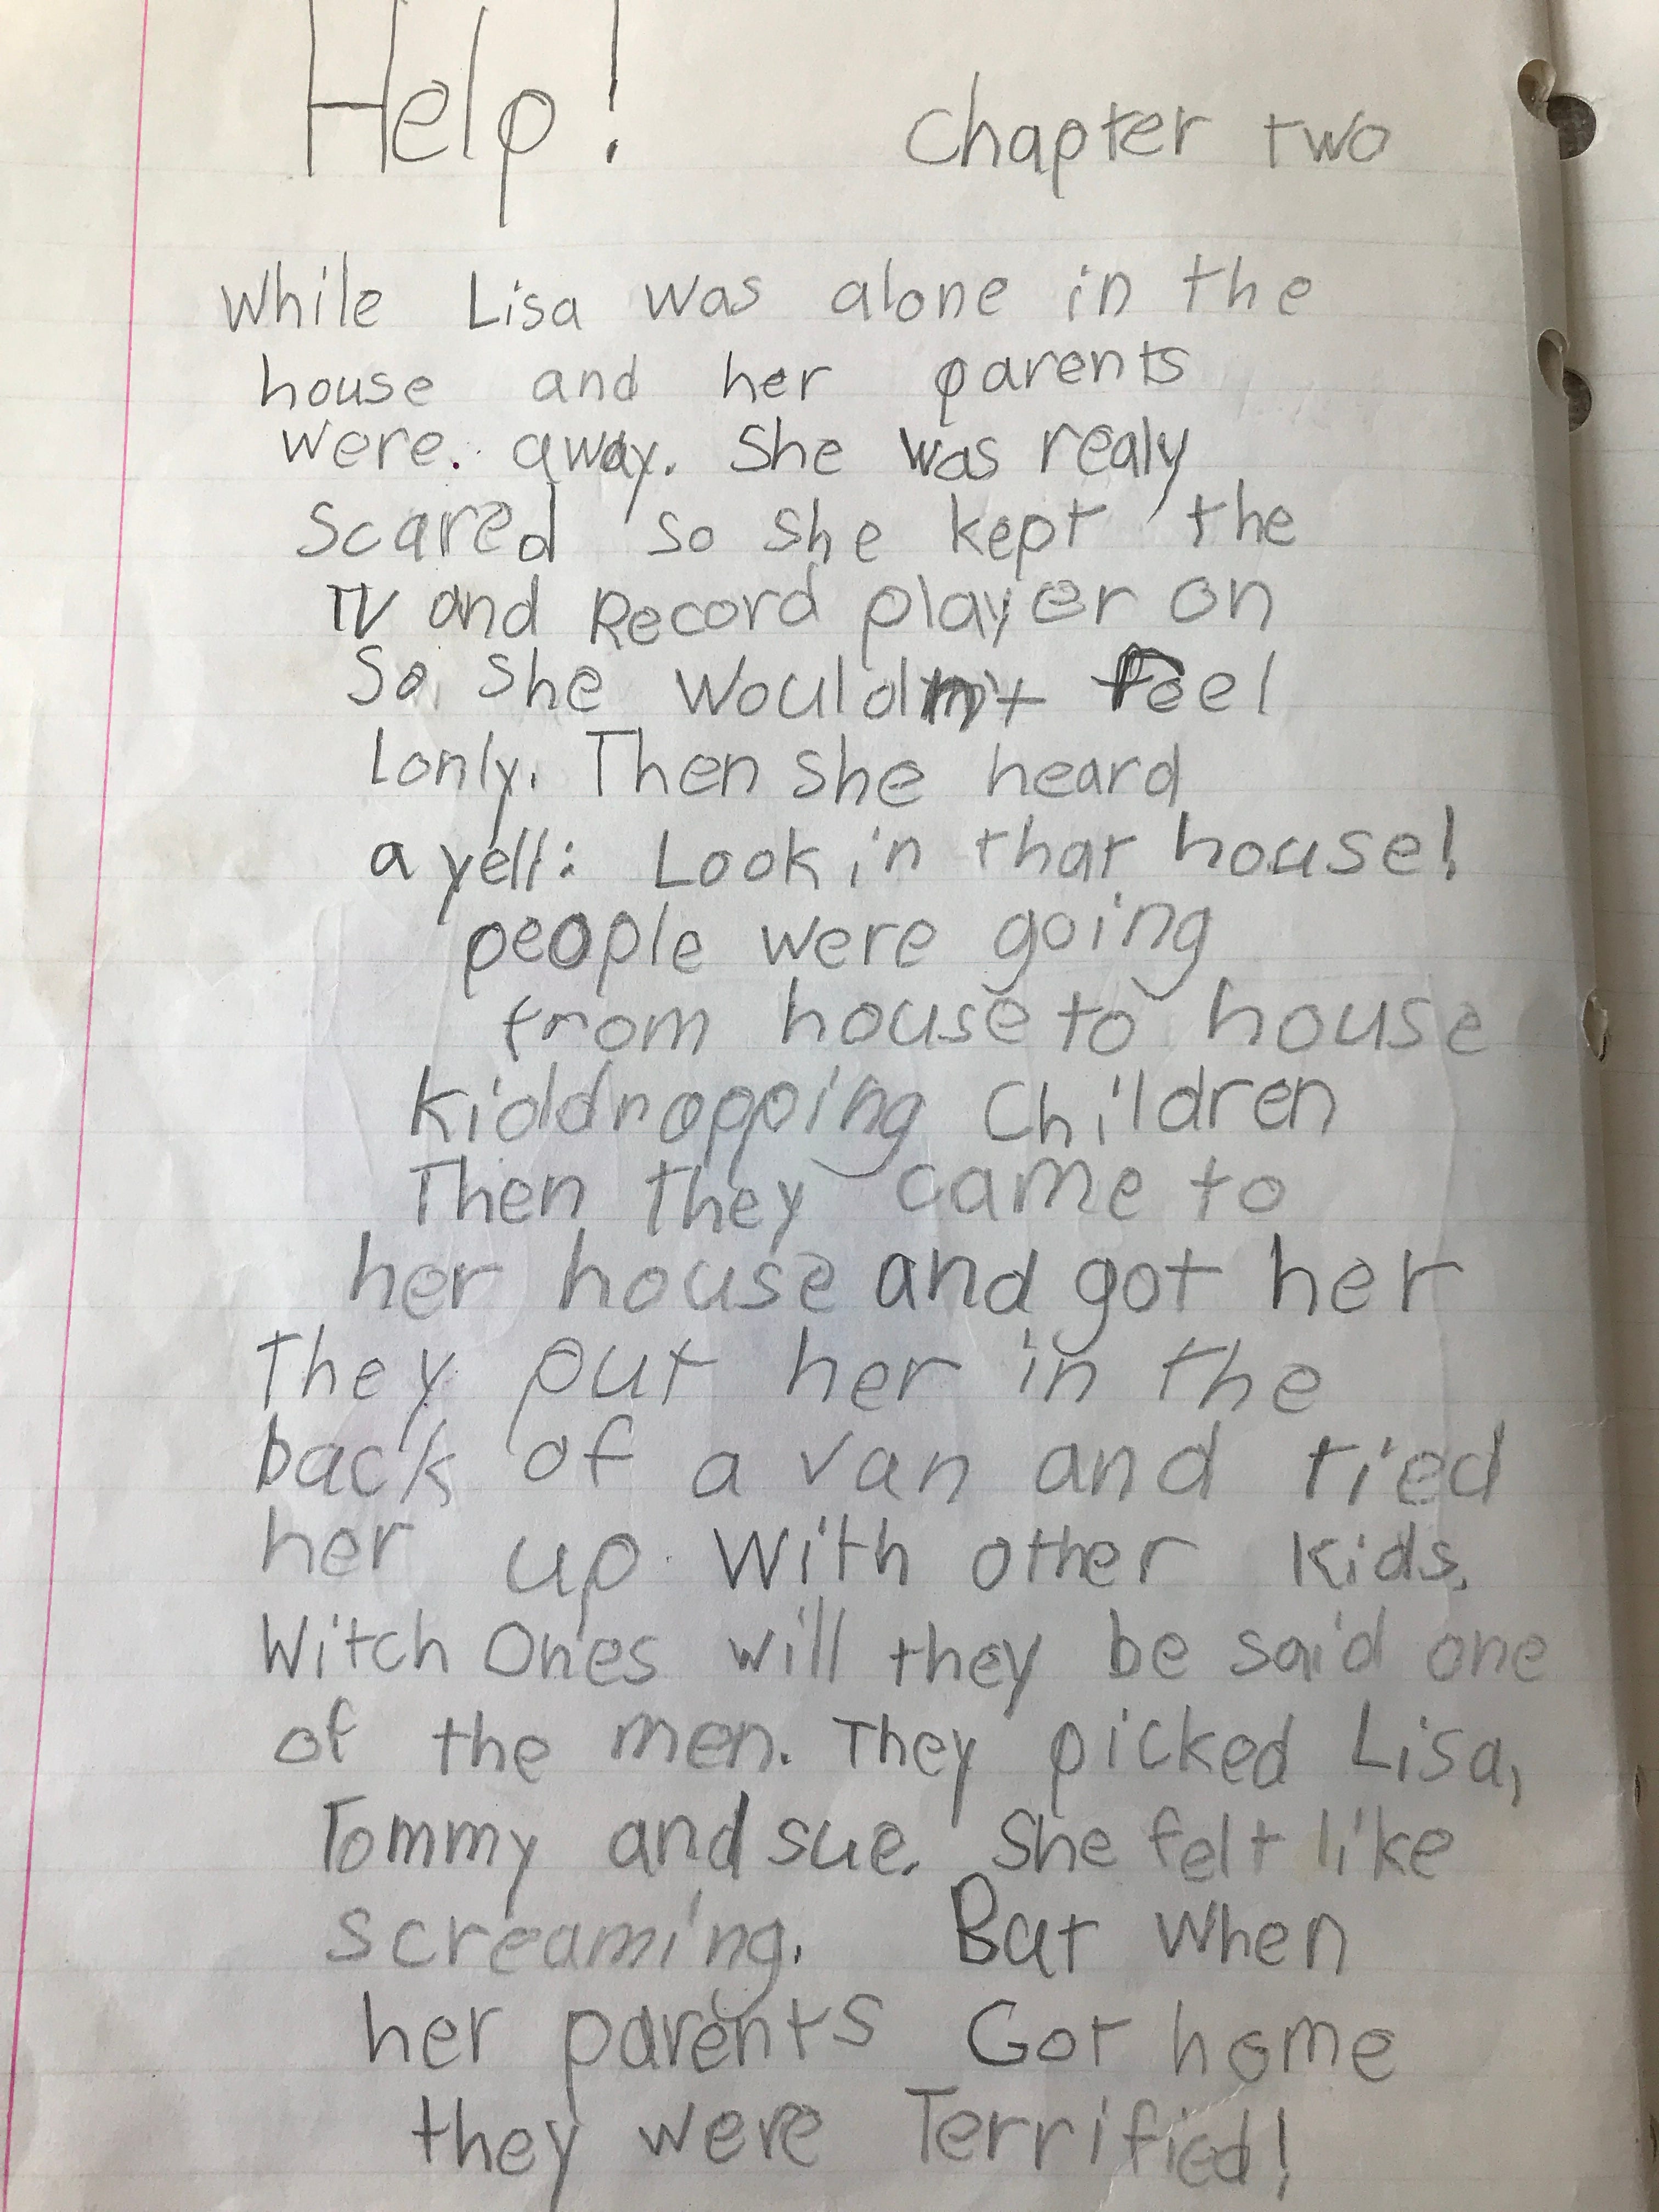 Help! Chapter two
While Lisa was alone in the
house and her parents
were. away. She was realy
scared so she kept the
TV and Record player on
So she wouldn't feel
lonly. Then she heard
a yell: Look in that house!
people were going
from house to house
kiddnapping children
Then they came to
her house and got her
They put her in the
back of a van and tied
her up with other kids.
Witch Ones will they be said one
of the men. They picked Lisa,
Tommy and sue. She felt like
screaming. But when
her parents Got home
they were Terrified!